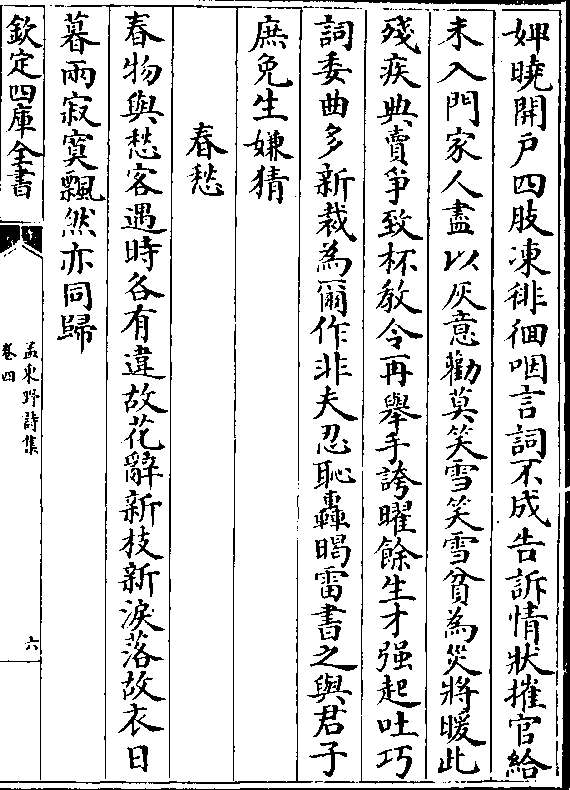 妽曉開戸四肢凍徘徊咽言詞不成告訴情狀摧官給
未入門家人盡以灰意勸莫笑雪笑雪貧為災將暖此
殘疾典賣爭致杯教令再舉手誇曜餘生才强起吐巧
詞委曲多新裁為爾作非夫忍恥轟暍雷書之與君子
庶免生嫌猜
春愁
春物與愁客遇時各有違故花辭新枝新淚落故衣日
暮雨寂寞飄然亦同歸
欽定四庫全書
孟東野詩集
卷四
六